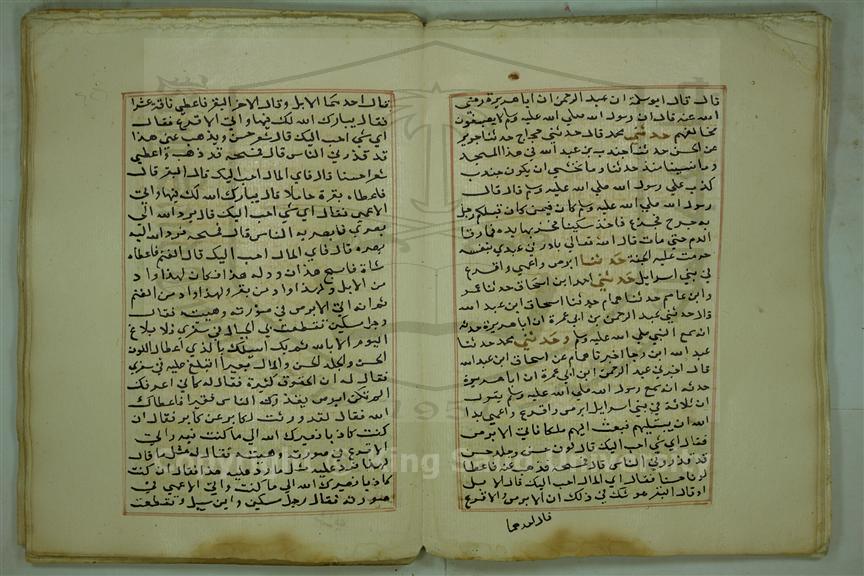 قال قال ابو سلمة ان عبد الرحمن ان ابا هريرة رضي
الله عنه قال ان رسول الله صلي الله عليه وسلم لا يصبغون
فخالفهم حدثني محمد قال حدثني حجاج حدثنا جرير
عن الحسن حدثنا جندب بن عبد الله في هذا المسجد
وما نسينا منذ حدثنا وما نخشي ان يكون جندب
كذب علي رسول الله صلي الله عليه وسلم قال قال
رسول الله صلي الله عليه وسلم كان فيمن كان قبلكم رجل
به جرح فجزع فاخذ سكينا فحز بها يده فما رقا
الدم حتي مات قال الله تعالي بادرني عبدي بنفسه
حرمت عليه الجنة حدثنا ابرص واعمي واقرع
في بني اسرايل حدثني احمد ابن اسحاق حدثنا عمرو
وابن عاصم حدثنا همام حدثنا اسحاق ابن عبد الله
قال حدثني عبد الرحمن بن ابي عمرة ان ابا هريرة حدثه
انه سمع النبي صلي الله عليه وسلم وحدثني محمد حدثنا
عبد الله ابن رجا اخبرنا همام عن اسحاق ابن عبد الله
قال اخبرني عبد الرحمن ابن ابي عمرة ان ابا هريرة
حدثه انه سمع رسول الله صلي الله عليه وسلم يقول
ان ثلاثة في بني اسرايل ابرص واقرع واعمي بدا
الله ان يبتليهم فبعث اليهم ملكا فاتي الابرص
فقال اي شي احب اليك قال لون حسن وجلد حسن
قد قذرني الناس قال فمسحه فذهب عنه فاعطي
لونا حسنا فقال اي المال احب اليك قال الابل
او قال البقر هو شك في ذلك ان الابرص والاقرع
قال احدهما
قال احدهما الابل وقال الاخر البقر فاعطي ناقة عشرا
فقال يبارك الله لك فيها واتي الاقرع فقال
اي شي احب اليك قال شعر حسن ويذهب عني هذا
قد قذرني الناس قال فمسحه فذهب واعطي
شعرا حسنا قال فاي المال احب اليك قال البقر قال
فاعطاه بقرة حاملا قال يبارك الله لك فيها واتي
الاعمي فقال اي شي احب اليك قال يرد الله الي
بصري فابصر به الناس قال فمسحه فرد الله اليه
بصره قال فاي المال احب اليك قال الغنم فاعطاه
شاة فانتج هذان وولد هذا فكان لهذا واد
من الابل ولهذا واد من بقر ولهذا واد من الغنم
ثم انه اتي الابرص في صورته وهيئته فقال
رجل مسكين تقطعت بي الحبال في سفري فلا بلاغ
اليوم الا بالله ثم بك اسيلك بالذي اعطاك اللون
الحسن والجلد الحسن والمال بعيرا اتبلغ عليه في سفري
فقال له ان الحقوق كثيرة فقال له كاني اعرفك
الم تكن ابرص يقذرك الناس فقيرا فاعطاك
الله فقال لقد ورثت لكابر عن كابر فقال ان
كنت كاذبا فصيرك الله الي ما كنت فيه واتي
الاقرع في صورته وهيئته فقال له مثل ما قال
لهذا فرد عليه مثل ما رد عليه هذا فقال ان كنت
كاذبا فصيرك الله الي ما كنت واتي الاعمي في
صورته فقال رجل مسكين وابن سبيل وتقطعت